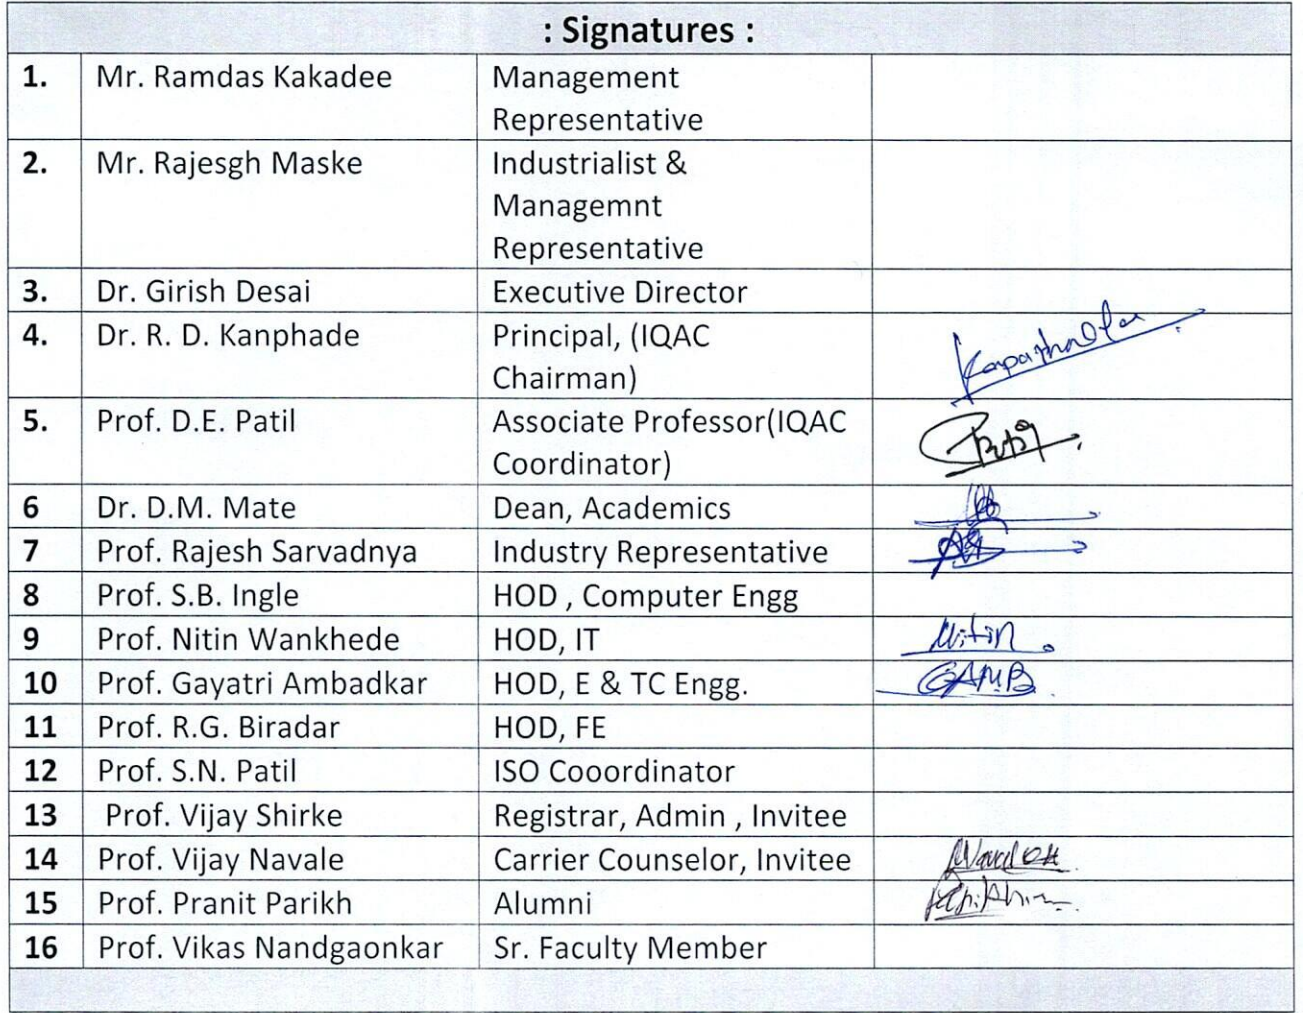 : Signatures :
1. Mr. Ramdas Kakadee Management
Representative
2. Mr. Rajesgh Maske Industrialist &
Managemnt
Representative
3. Dr. Girish Desai Executive Director
4. Dr. R. D. Kanphade Principal, (IQAC
Chairman)
5. Prof. D.E. Patil Associate Professor(IQAC
Coordinator)
6 Dr. D.M. Mate Dean, Academics
7 Prof. Rajesh Sarvadnya Industry Representative
8 Prof. S.B. Ingle HOD , Computer Engg
9 Prof. Nitin Wankhede HOD, IT Nitin
10 Prof. Gayatri Ambadkar HOD, E & TC Engg. GAMB
11 Prof. R.G. Biradar HOD, FE
12 Prof. S.N. Patil ISO Cooordinator
13 Prof. Vijay Shirke Registrar, Admin , Invitee
14 Prof. Vijay Navale Carrier Counselor, Invitee
15 Prof. Pranit Parikh Alumni
16 Prof. Vikas Nandgaonkar Sr. Faculty Member